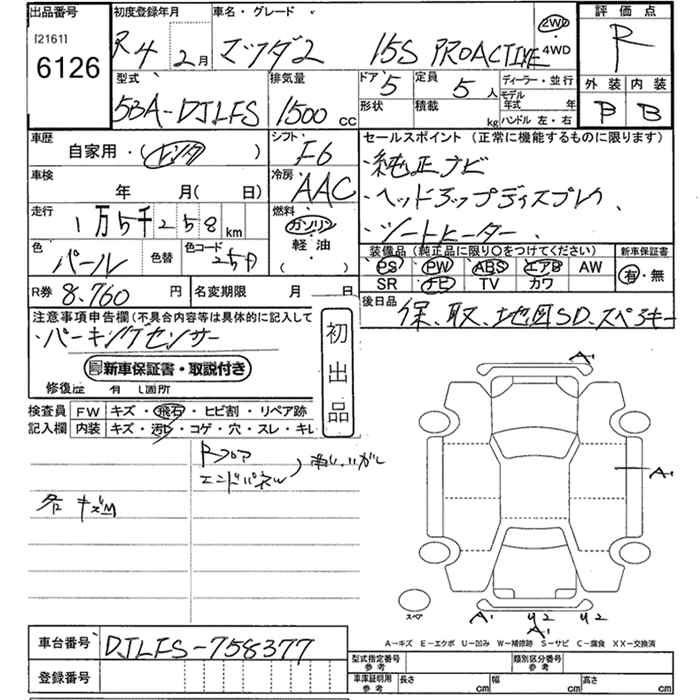 出品番号
[2161]
6126
初度登録年月
R4 2月
車名・グレード
マツダ2 15S PROACTIVE
2WD
・4WD
評価点
R
型式
5BA-DJLFS
排気量
1500 cc
ドア 5
形状
定員 5人
積載 kg
ディーラー・並行
モデル年式 年
ハンドル 左・右
外装 内装
P B
車歴
自家用・(レンタ)
シフト
F6
車検
年 月( 日)
冷房
AAC
走行
1万5千258km
燃料
ガソリン
軽油
(・)
色
パール
色替
色コード
25D
R券 8,760円
名変期限 月 日
セールスポイント(正常に機能するものに限ります)
・純正ナビ
・ヘッドアップディスプレイ、
・シートヒーター、
装備品(純正品に限り○をつけてください)
PS PW ABS エアB AW
SR ナビ TV カワ
新車保証書
有・無
後日品
保、取、地図SD、スペアキー
注意事項申告欄(不具合内容等は具体的に記入して
・パーキングセンサー
新車保証書・取説付き
修復歴 有 箇所
初出品
検査員記入欄
FW キズ・飛石・ヒビ割・リペア跡
内装 キズ・汚レ・コゲ・穴・スレ・キレ
Rフロア
エンドパネル
各キズM
A1
A1
スペア
A1 U2 U2
A1
A-キズ E-エクボ U-凹み W-補修跡 S-サビ C-腐食 XX-交換済
車台番号 DJLFS-758377
登録番号
型式指定番号
参考
類別区分番号
参考
車庫証明用
参考
長さ cm 幅 cm 高さ cm